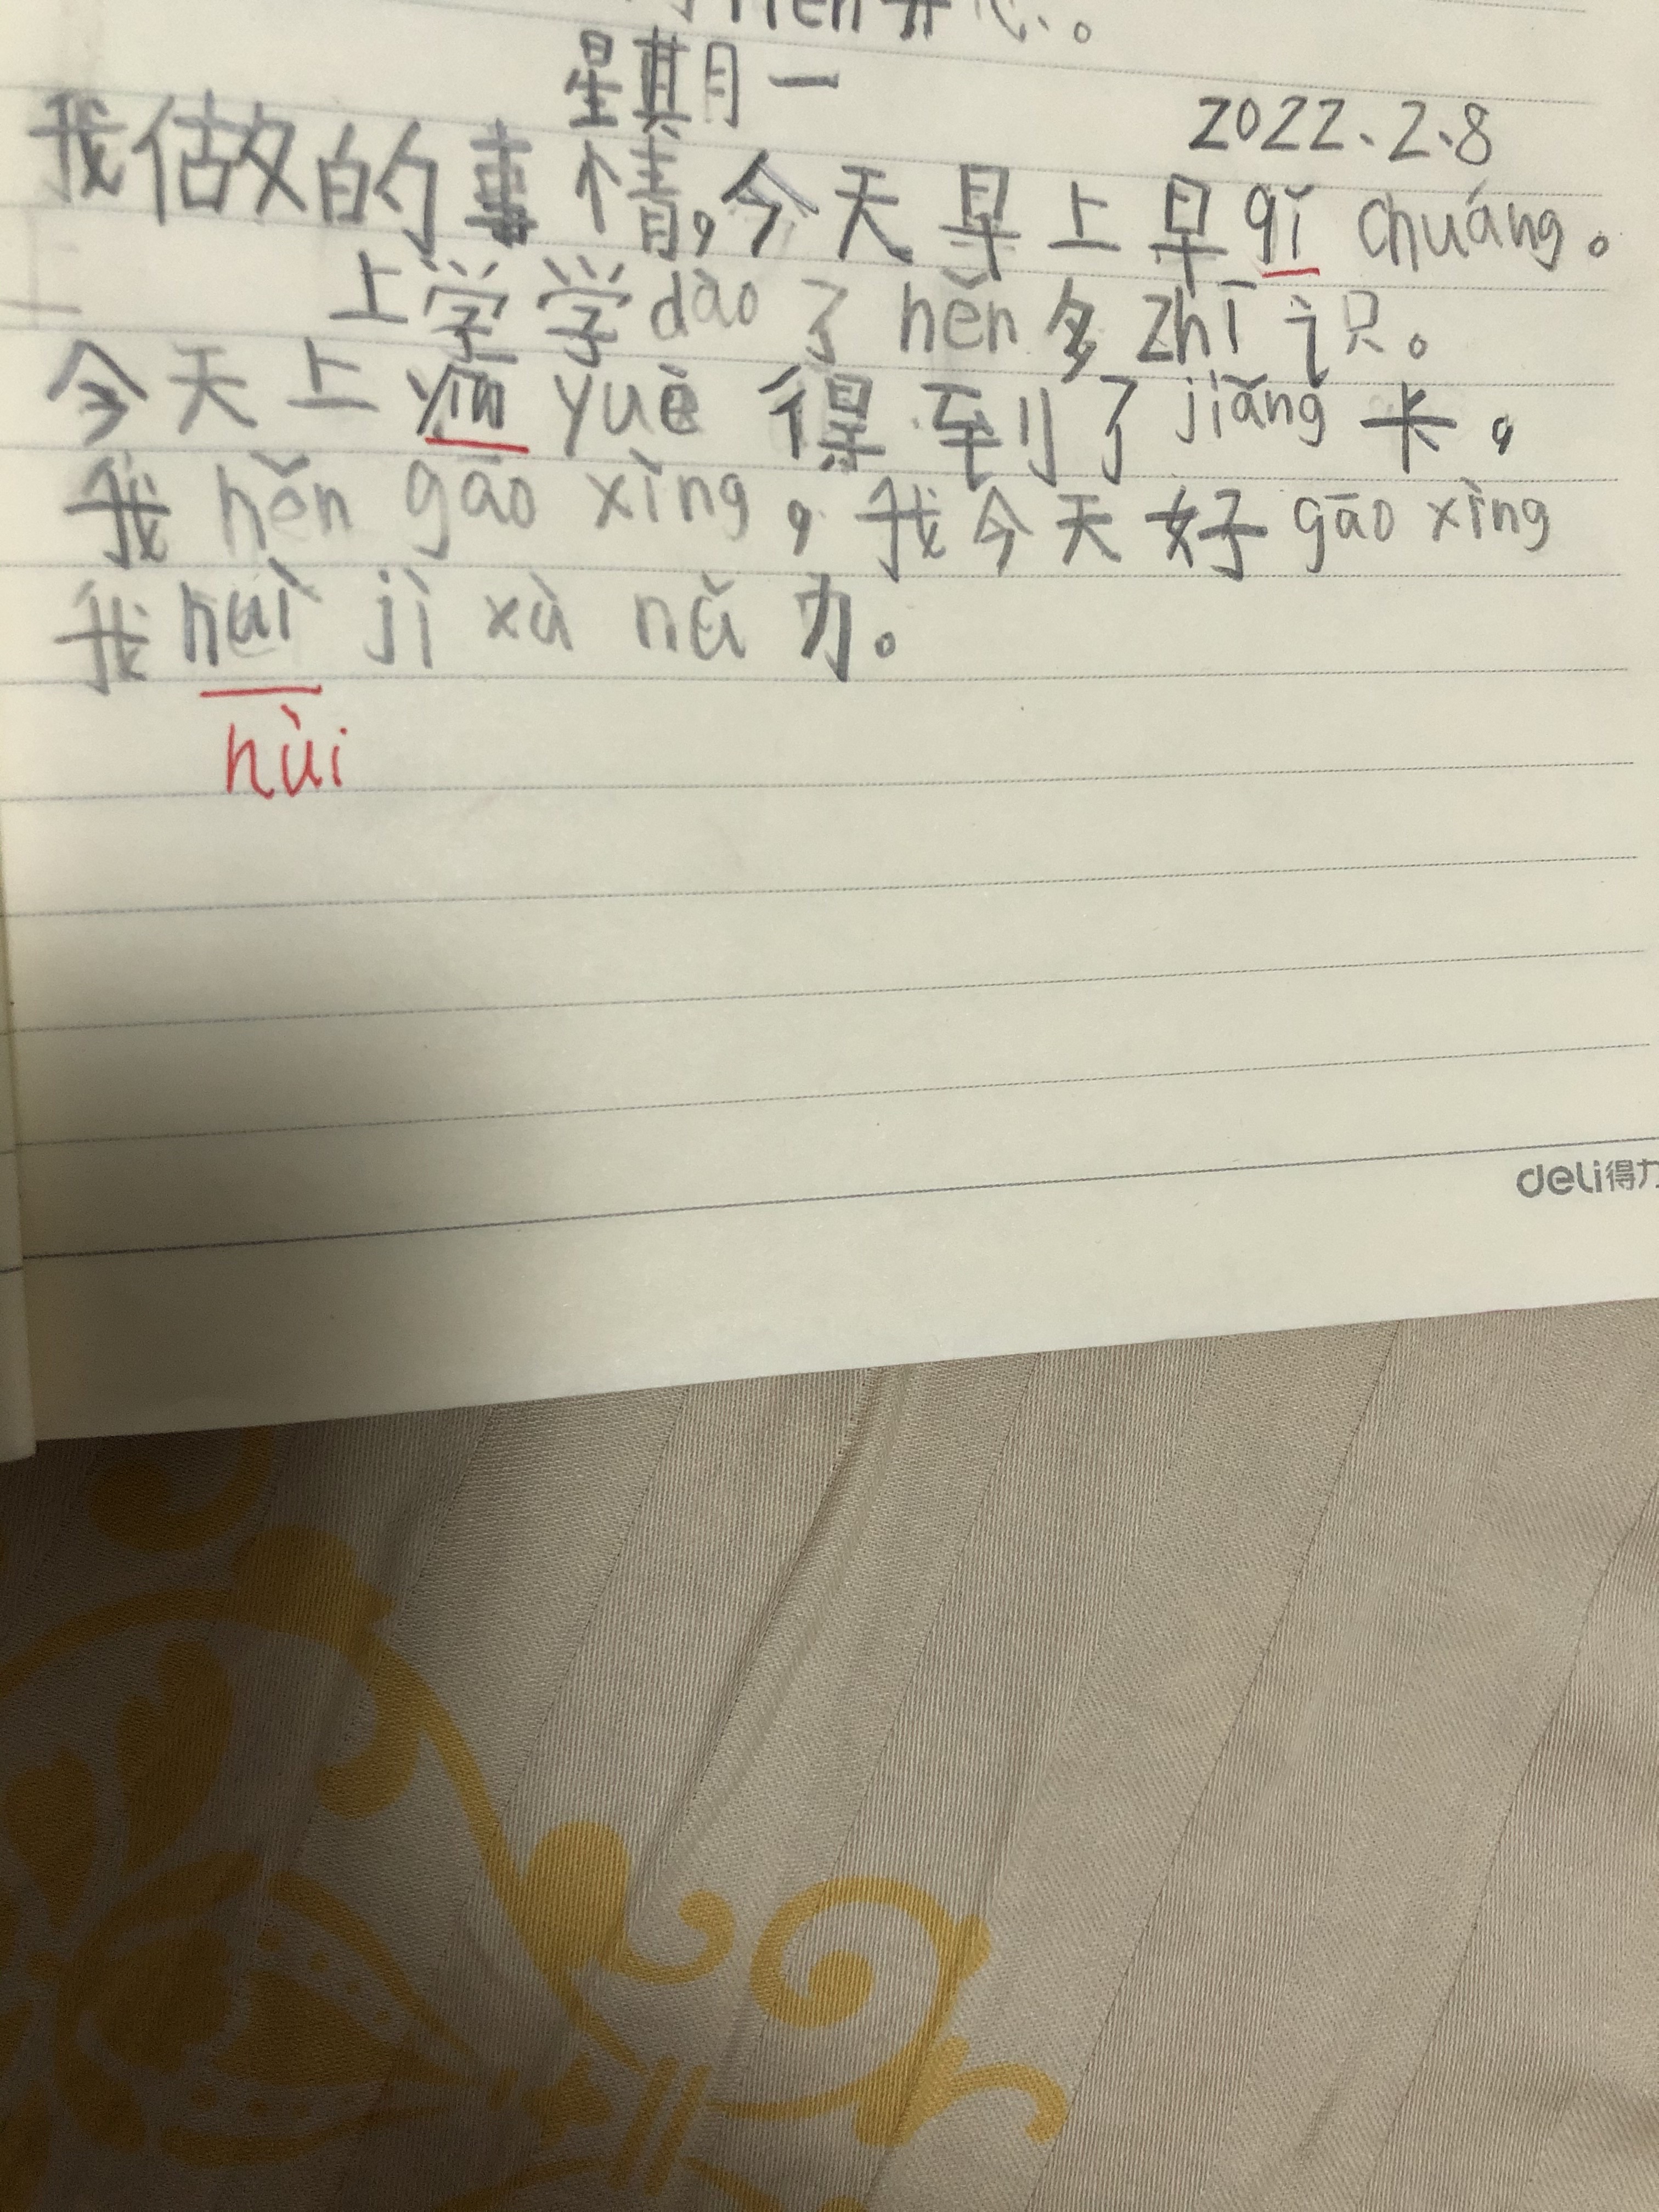 星期一
2022.2.8
我做的事情,今天早上早qǐ chuáng。
上学学dào了hěn多zhī识。
今天上 yīn yuè 得到了jiǎng卡,
我 hěn gāo xìng,我今天好gāo xìng
我 huì jì xù nǔ 力。
hùi
deli得力